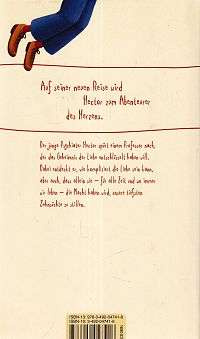 Auf seiner neuen Reise wird
Hector zum Abenteurer
des Herzens.
Der junge Psychiater Hector spürt einem Professor nach,
der das Geheimnis der Liebe entschlüsselt haben will.
Dabei entdeckt er, wie kompliziert die Liebe sein kann,
aber auch, dass allein sie – für alle Zeit und wo immer
wir leben – die Macht haben wird, unsere tiefsten
Sehnsüchte zu stillen.
ISBN-13: 978-3-492-04741-8
ISBN-10: 3-492-04741-8